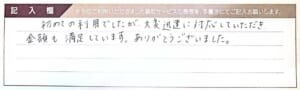 記入欄
初めての利用でしたが大変迅速に対応していただき
金額も満足しています。ありがとうございました。